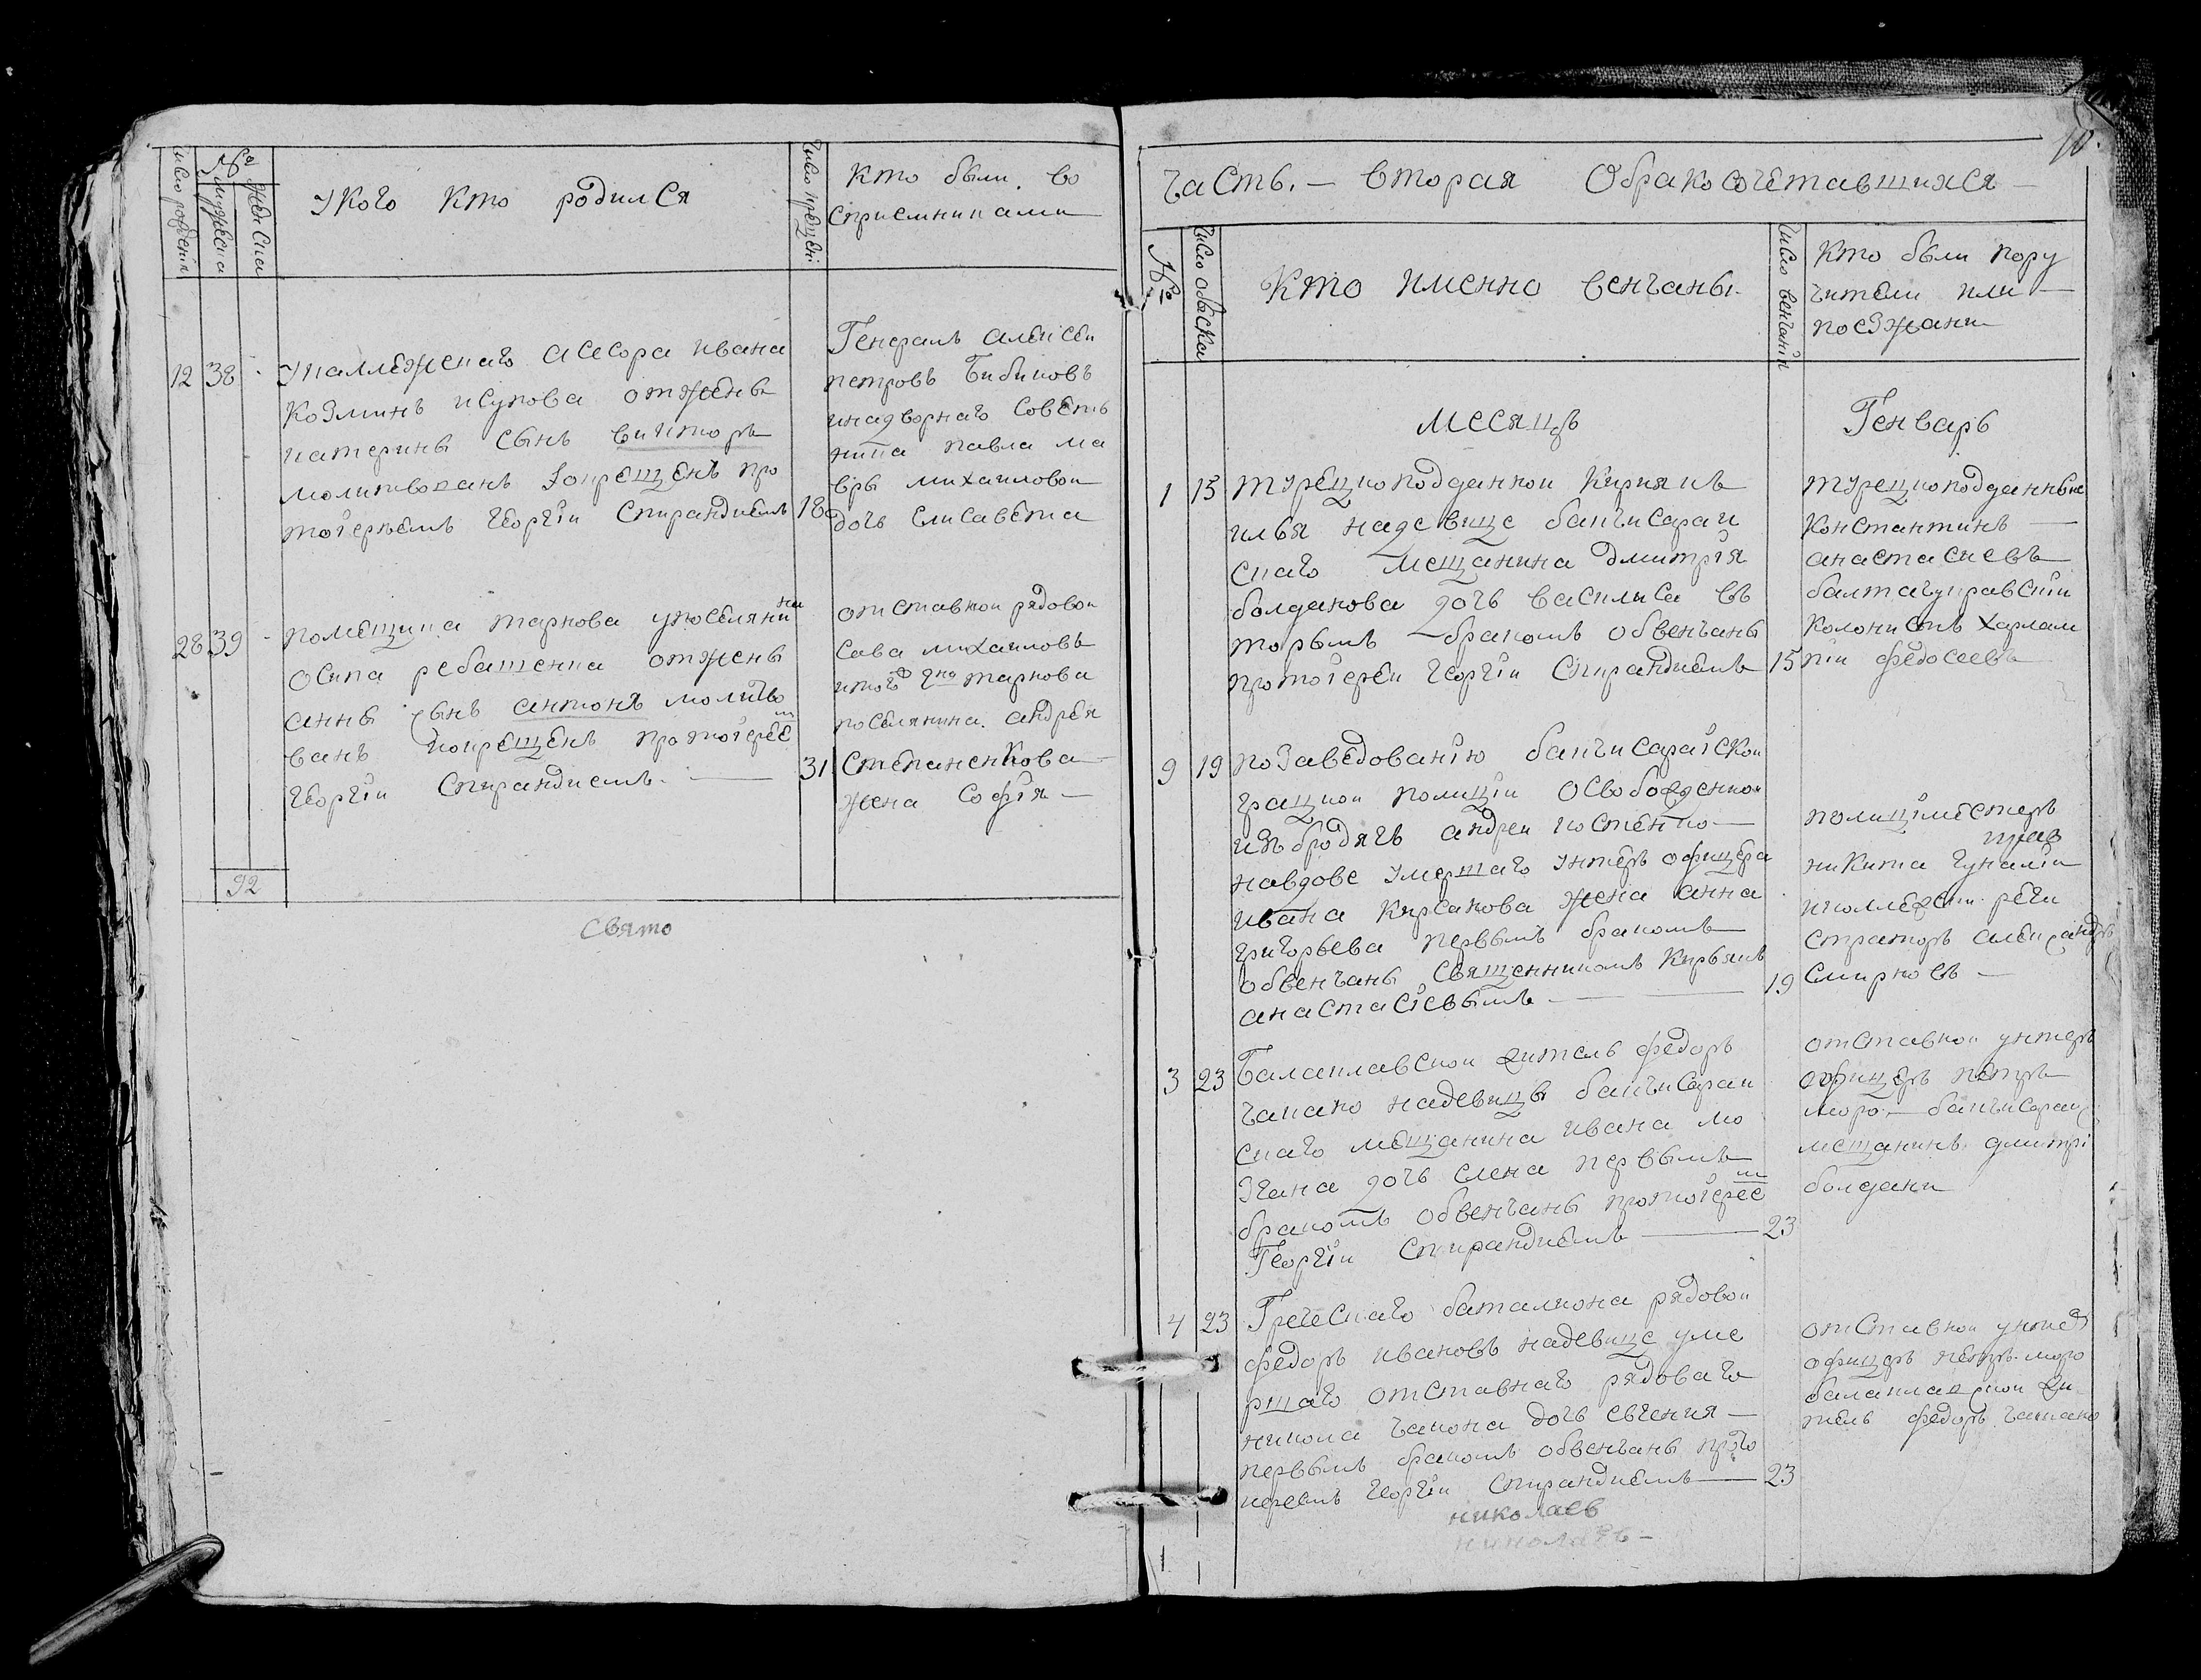 Число рождения
№
мужеска
женска
У кого кто родился
Число крещен:
кто были во
сприемниками
12 38
У каллежскаго асесора ивана
Козминъ исупова отжены
катерины сынъ викторъ
молитвованъ Iокрещенъ про
тоiереемъ Георгiи Спирандиемъ 18
Генералъ алексеи
петровъ Бибиковъ
инадворнаго Советъ
ника павла ма
вры михаиловои
дочъ елисавета
28 39
помещика таркова упоселянина
осипа ребашенка отжены
анны сынъ антонъ молитво
ванъ iокрещенъ протоiерее
Георгiи Спирандиемъ. — 31
отставнои рядовои
Сава михаиловъ
итого таркова
поселянина. андрея
Степаненкова
жена София —
92
Свято
10.
Часть. — вторая Обракосочетавшихся —
№
Число обыска
Кто именно венчаны.
Число венчанiя
Кто были пору
чители или —
поезжани
месяцъ
Генварь
1 15
турецкоподданнои Кириякъ
илья надевице бахчисараи
скаго мещанина дмитрiя
болданова дочъ василиса въ
торымъ бракомъ обвенчаны
протоiереи Георгiи Спирандиемъ 15
турецкоподданные
Константинъ —
анастасиевъ
балтачукравскiи
колонистъ харлам
пiи федосеевъ
9 19
позаведованiю бахчисарайскои
градцкои полицiи освобожденнои
изъ бродягъ андреи костенко —
навдове умершаго унтеръ офицера
ивана Кирсанова жена анна
григорьева первымъ бракомъ
обвенчаны Священникомъ Кирьякъ
анастасiевымъ — 19
полицiместеръ
никита Гунали
иколлежски реги
страторъ александръ
Смирновъ —
3 23
Балаклавскои житель федоръ
чапако надевицы бахчисараи
скаго мещанина ивана мо
згана дочъ елена первымъ
бракомъ обвенчаны протоiерее
Георгiи Спирандиемъ — 23
отставнои унтеръ
офицеръ петръ
моро — бахчисараи
мещанинъ дмитрi
болдани
4 23
Греческаго баталиона рядовои
федоръ ивановъ надевице уме
ршаго отставнаго рядоваго
никола чапона дочъ евгения —
первымъ бракомъ обвенчаны прото
иереемъ Георгiи Спирандиемъ — 23
отставнои унтеръ
офицеръ петръ. моро
балаклавскои жи
тель федоръ чапако
николаев
николаевъ —